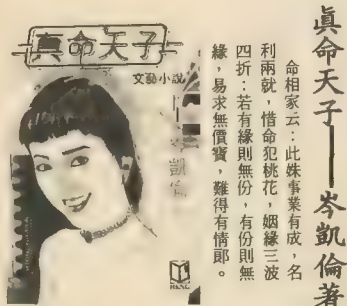 真命天子——岑凱倫著
命相家云：此姝事業有成，名
利兩就，惜命犯桃花，姻緣三波
四折：若有緣則無份，有份則無
緣，易求無價寶，難得有情郎。
真命天子
文藝小說
岑凱倫